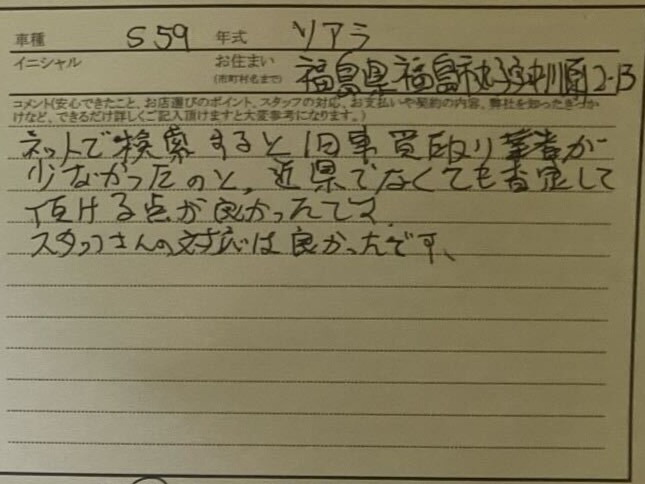 車種 S59 年式 ソアラ
イニシャル お住まい
(市町村名まで) 福島県福島市丸子字中川原2-13
コメント(安心できたこと、お店選びのポイント、スタッフの対応、お支払いや契約の内容、弊社を知ったきっか
けなど、できるだけ詳しくご記入頂けますと大変参考になります。)
ネットで検索すると旧車買取り業者が
少なかったのと、近県でなくても査定して
頂ける点が良かったです
スタッフさんの対応は良かったです、